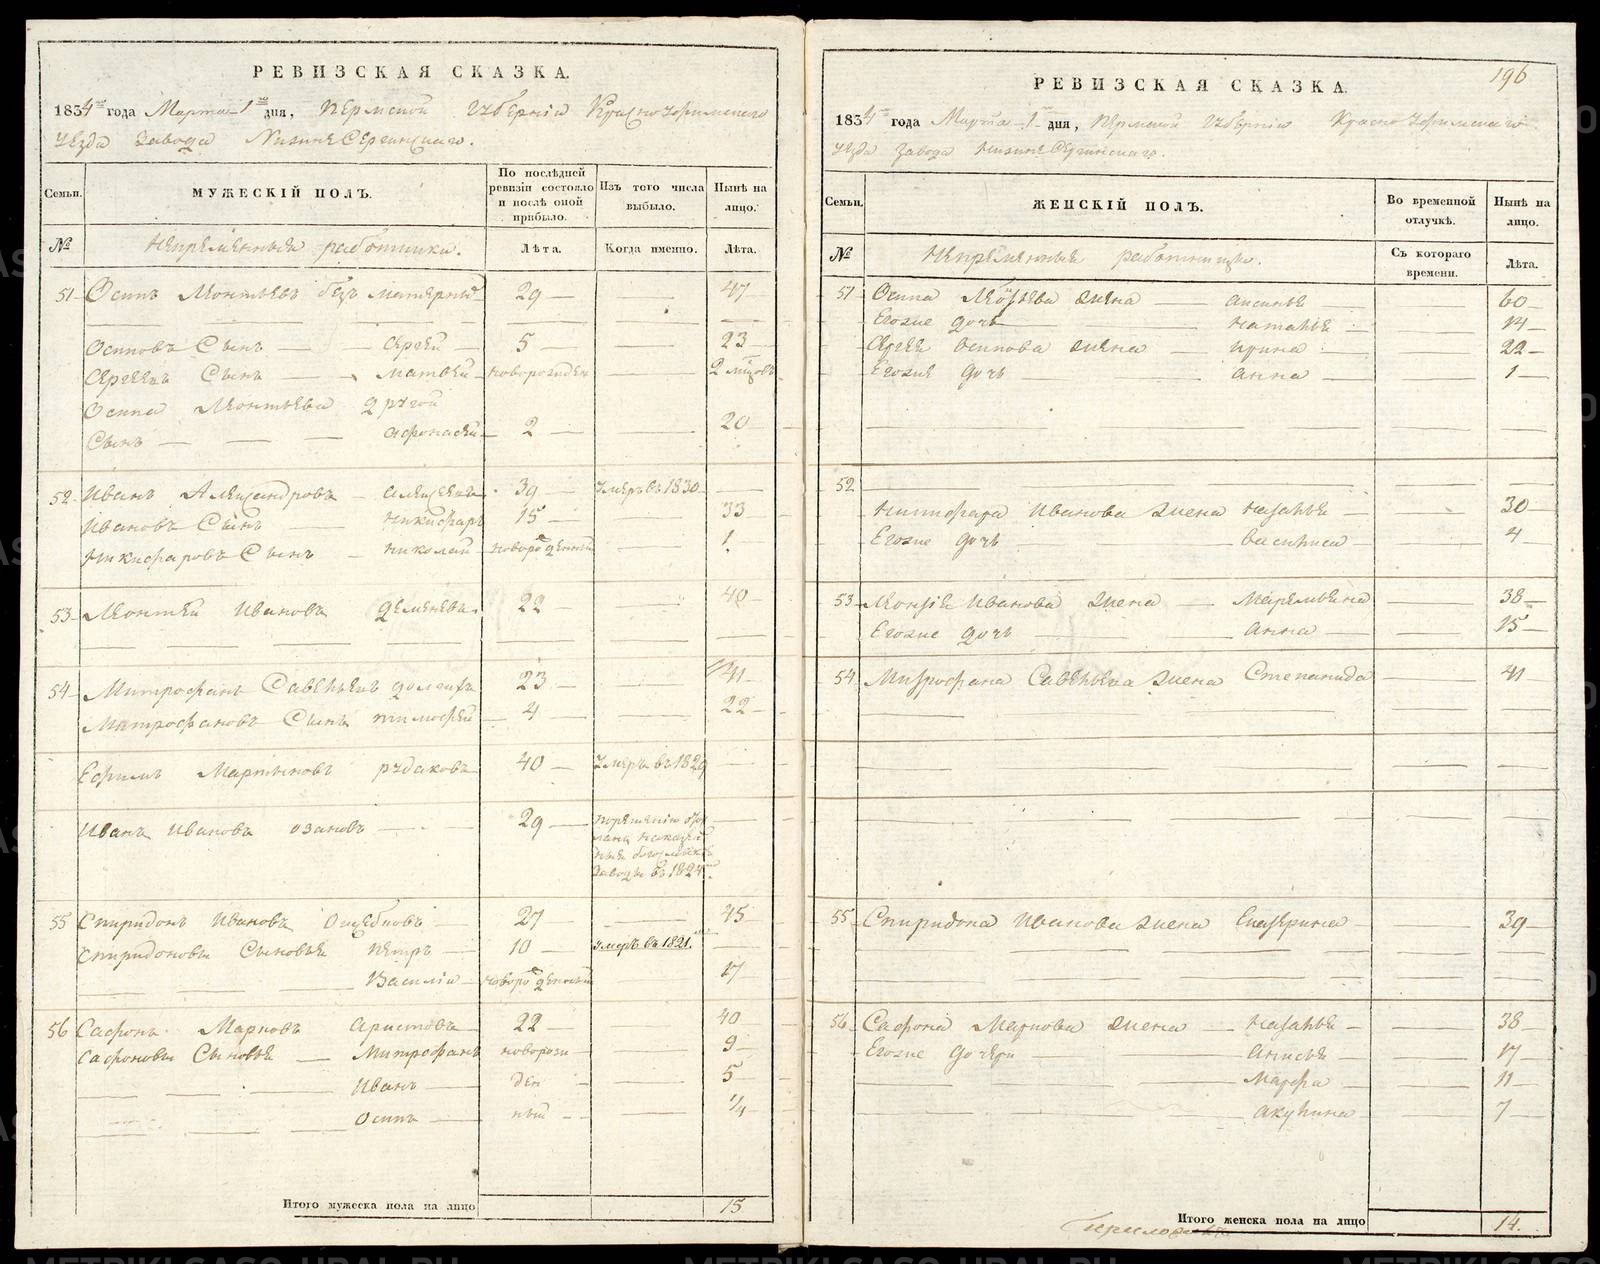 РЕВИЗСКАЯ СКАЗКА.
1834 года Марта 1 дня, Пермской Губернiи Красноуфимскаго
уезда завода Нижне Сергинскаго.
Семьи. МУЖЕСКIЙ ПОЛЪ. По послѣдней ревизiи состояло и послѣ оной прибыло. Изъ того числа выбыло. Нынѣ на лицо.
№ Непременныя работники. Лѣта. Когда именно. Лѣта.
51 Осипъ Леонтьевъ безъ 29 47
Осиповъ Сынъ Сергей 5 23
Сергеевъ Сынъ Матвей новорожден 2
Осипа Леонтьева другой
Сынъ Афонасей 2 20
52 Иванъ Александровъ 39 умеръ въ 1830
Ивановъ Сынъ Никифаръ 15 33
Никифаровъ Сынъ Николай новорожденный 1
53 Леонтей Ивановъ 22 40
54 Митрофанъ Савеньевъ 23 41
Митрофановъ Сынъ тимофей 4 22
Ефимъ Мартыновъ рудаковъ 40 умеръ въ 1829
Иванъ Ивановъ озановъ 29
заводы въ 1824
55 Спиридонъ Ивановъ 27 45
Спиридоновы Сыновья Петръ 10 умеръ въ 1821
Василiй новорожденный 17
56 Сафонъ Марковъ Аристовъ 22 40
Сафоновы Сыновья Митрофанъ новорож 9
Иванъ ден 5
Осипъ ный 1/4
Итого мужеска пола на лицо 15
196
РЕВИЗСКАЯ СКАЗКА.
1834 года Марта 1 дня, Пермской Губернiи Красноуфимскаго
уезда завода Нижне Сергинскаго.
Семьи. ЖЕНСКIЙ ПОЛЪ. Во временной отлучкѣ. Нынѣ на лицо.
№ Непременныя работницы. Съ котораго времени. Лѣта.
51 Осипа Леонтьева жена Аксинья 60
Егоже дочь Наталья 14
Сергея Осипова жена Ирина 22
Егоже дочь Анна 1
52
Никифара Иванова жена Наталья 30
Егоже дочь Василиса 4
53 Леонтiя Иванова жена Маремьяна 38
Егоже дочь Анна 15
54 Митрофана Савеньева жена Степанида 41
55 Спиридона Иванова жена Екатерина 39
56 Сафона Маркова жена Наталья 38
Егоже дочери Анисья 17
Марфа 11
Акулина 7
Итого женска пола на лицо 14.